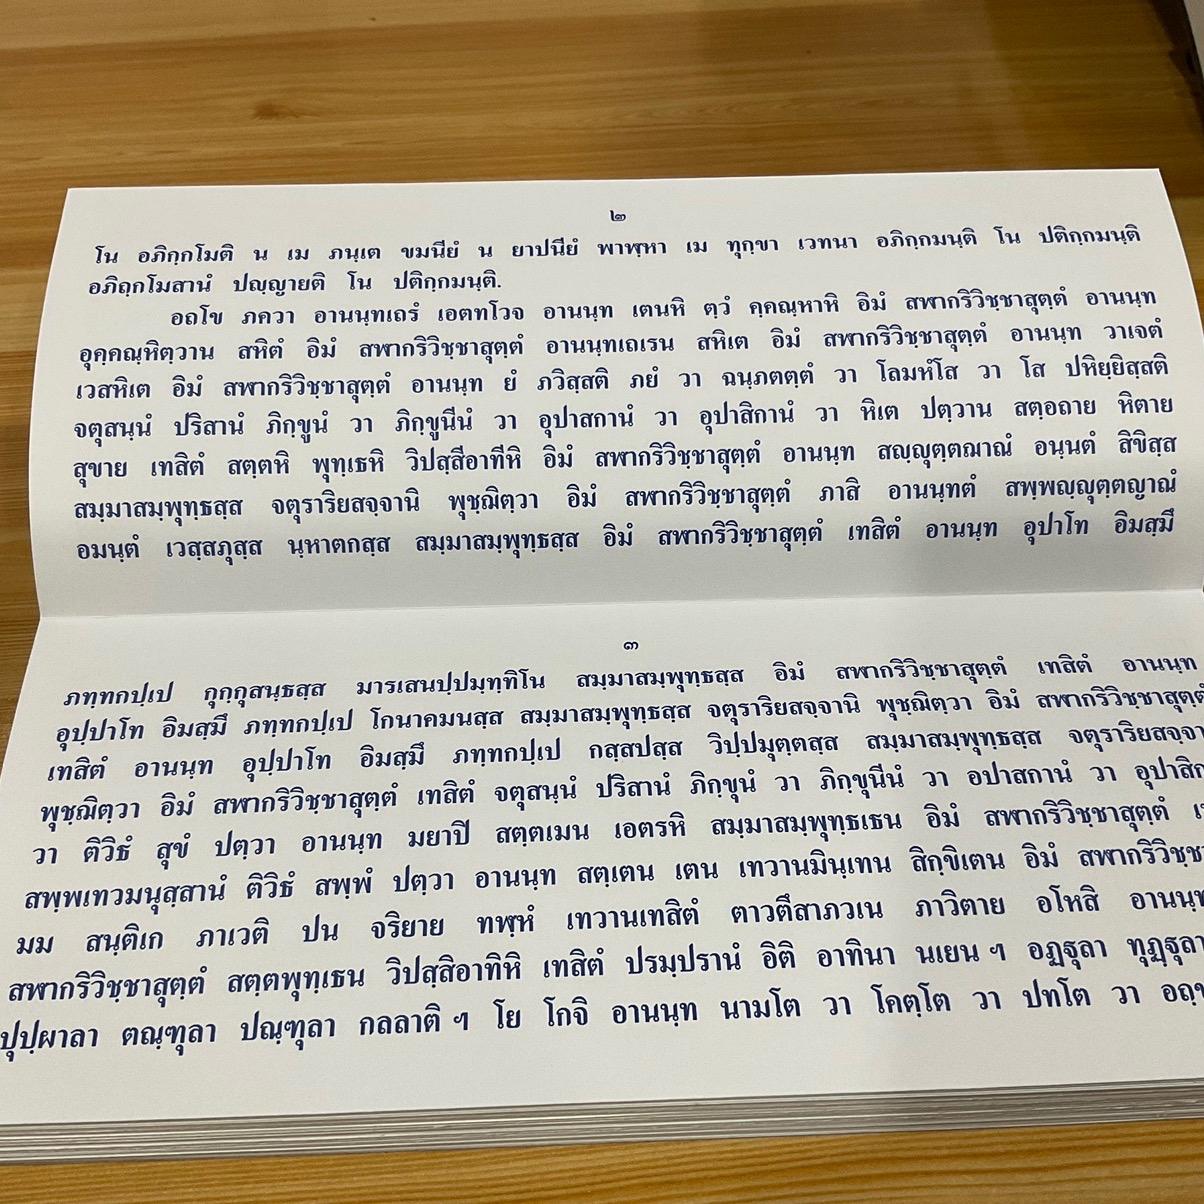 ๒
โน อภิกฺกโมติ น เม ภนฺเต ขมนียํ น ยาปนียํ พาฬฺหา เม ทุกฺขา เวทนา อภิกฺกมนฺติ โน ปติกฺกมนฺติ
อภิฤกฺโมสานํ ปญฺญายติ โน ปติกฺกมนฺติ.
อถโข ภควา อานนฺทเถรํ เอตทโวจ อานนฺท เตนหิ ตฺวํ คฺคณฺหาหิ อิมํ สพากริวิชฺชาสุตฺตํ อานนฺท
อุคฺคณฺหิตฺวาน สหิตํ อิมํ สพากริวิชฺชาสุตฺตํ อานนฺทเถเรน สหิเต อิมํ สพากริวิชฺชาสุตฺตํ อานนฺท วาเจตํ
เวสหิเต อิมํ สพากริวิชฺชาสุตฺตํ อานนฺท ยํ ภวิสฺสติ ภยํ วา ฉนฺภตตฺตํ วา โถมหํโส วา โส ปหิยฺยิสฺสติ
จตุสนฺนํ ปริสานํ ภิกฺขูนํ วา ภิกฺขูนีนํ วา อุปาสกานํ วา อุปาสิกานํ วา หิเต ปตฺวาน สตฺอถาย หิตาย
สุขาย เทสิตํ สตฺตหิ พุทฺเธหิ วิปสฺสีอาทีหิ อิมํ สพากริวิชฺชาสุตฺตํ อานนฺท สญฺญุตฺตฌาณํ อนฺนตํ สิขิสฺส
สมฺมาสมฺพุทฺธสฺส จตุราริยสจฺจานิ พุชฺฌิตฺวา อิมํ สพากริวิชฺชาสุตฺตํ ภาสิ อานนฺทตํ สพฺพญฺญุตฺตญาณํ
อมนฺตํ เวสฺสภุสฺส นฺหาตกสฺส สมฺมาสมฺพุทฺธสฺส อิมํ สพากริวิชฺชาสุตฺตํ เทสิตํ อานนฺท อุปาโท อิมสฺมึ
๓
ภทฺทกปฺเป กุกฺกุสนฺธสฺส มารเสนปฺปมฺทฺทิโน สมฺมาสมฺพุทฺธสฺส อิมํ สพากริวิชฺชาสุตฺตํ เทสิตํ อานนฺท
อุปฺปาโท อิมสฺมึ ภทฺทกปฺเป โกนาคมนสฺส สมฺมาสมฺพุทฺธสฺส จตุราริยสจฺจานิ พุชฺฌิตฺวา อิมํ สพากริวิชฺชาสุตฺตํ
เทสิตํ อานนฺท อุปฺปาโท อิมสฺมึ ภทฺทกปฺเป กสฺสปสฺส วิปฺปมุตฺตสฺส สมฺมาสมฺพุทฺธสฺส
พุชฺฌิตฺวา อิมํ สพากริวิชฺชาสุตฺตํ เทสิตํ จตุสนฺนํ ปริสานํ ภิกฺขุนํ วา ภิกฺขุนีนํ วา อปาสกานํ วา
วา ติวิธํ สุขํ ปตฺวา อานนฺท มยาปิ สตฺตเมน เอตรหิ สมฺมาสมฺพุทฺธเธน อิมํ สพากริวิชฺชาสุตฺตํ
สพฺพเทวมนุสฺสานํ ติวิธํ สพฺพํ ปตฺวา อานนฺท สตฺเตน เตน เทวานมินฺเทน สิกฺขิเตน อิมํ
มม สนฺติเก ภาเวติ ปน จริยาย ทพฺหํ เทวานเทสิตํ ตาวตึสาภวเน ภาวิตาย อโหสิ
สพากริวิชฺชาสุตฺตํ สตฺตพุทฺเธน วิปสฺสิอาทิหิ เทสิตํ ปรมฺปรานํ อิติ อาทินา นเยน ฯ อฏฺฐุลา
ปุปฺผาลา ตณฺฑุลา ปณฺฑุลา กลลาติ ฯ โย โกจิ อานนฺท นามโต วา โคตฺโต วา ปทโต วา